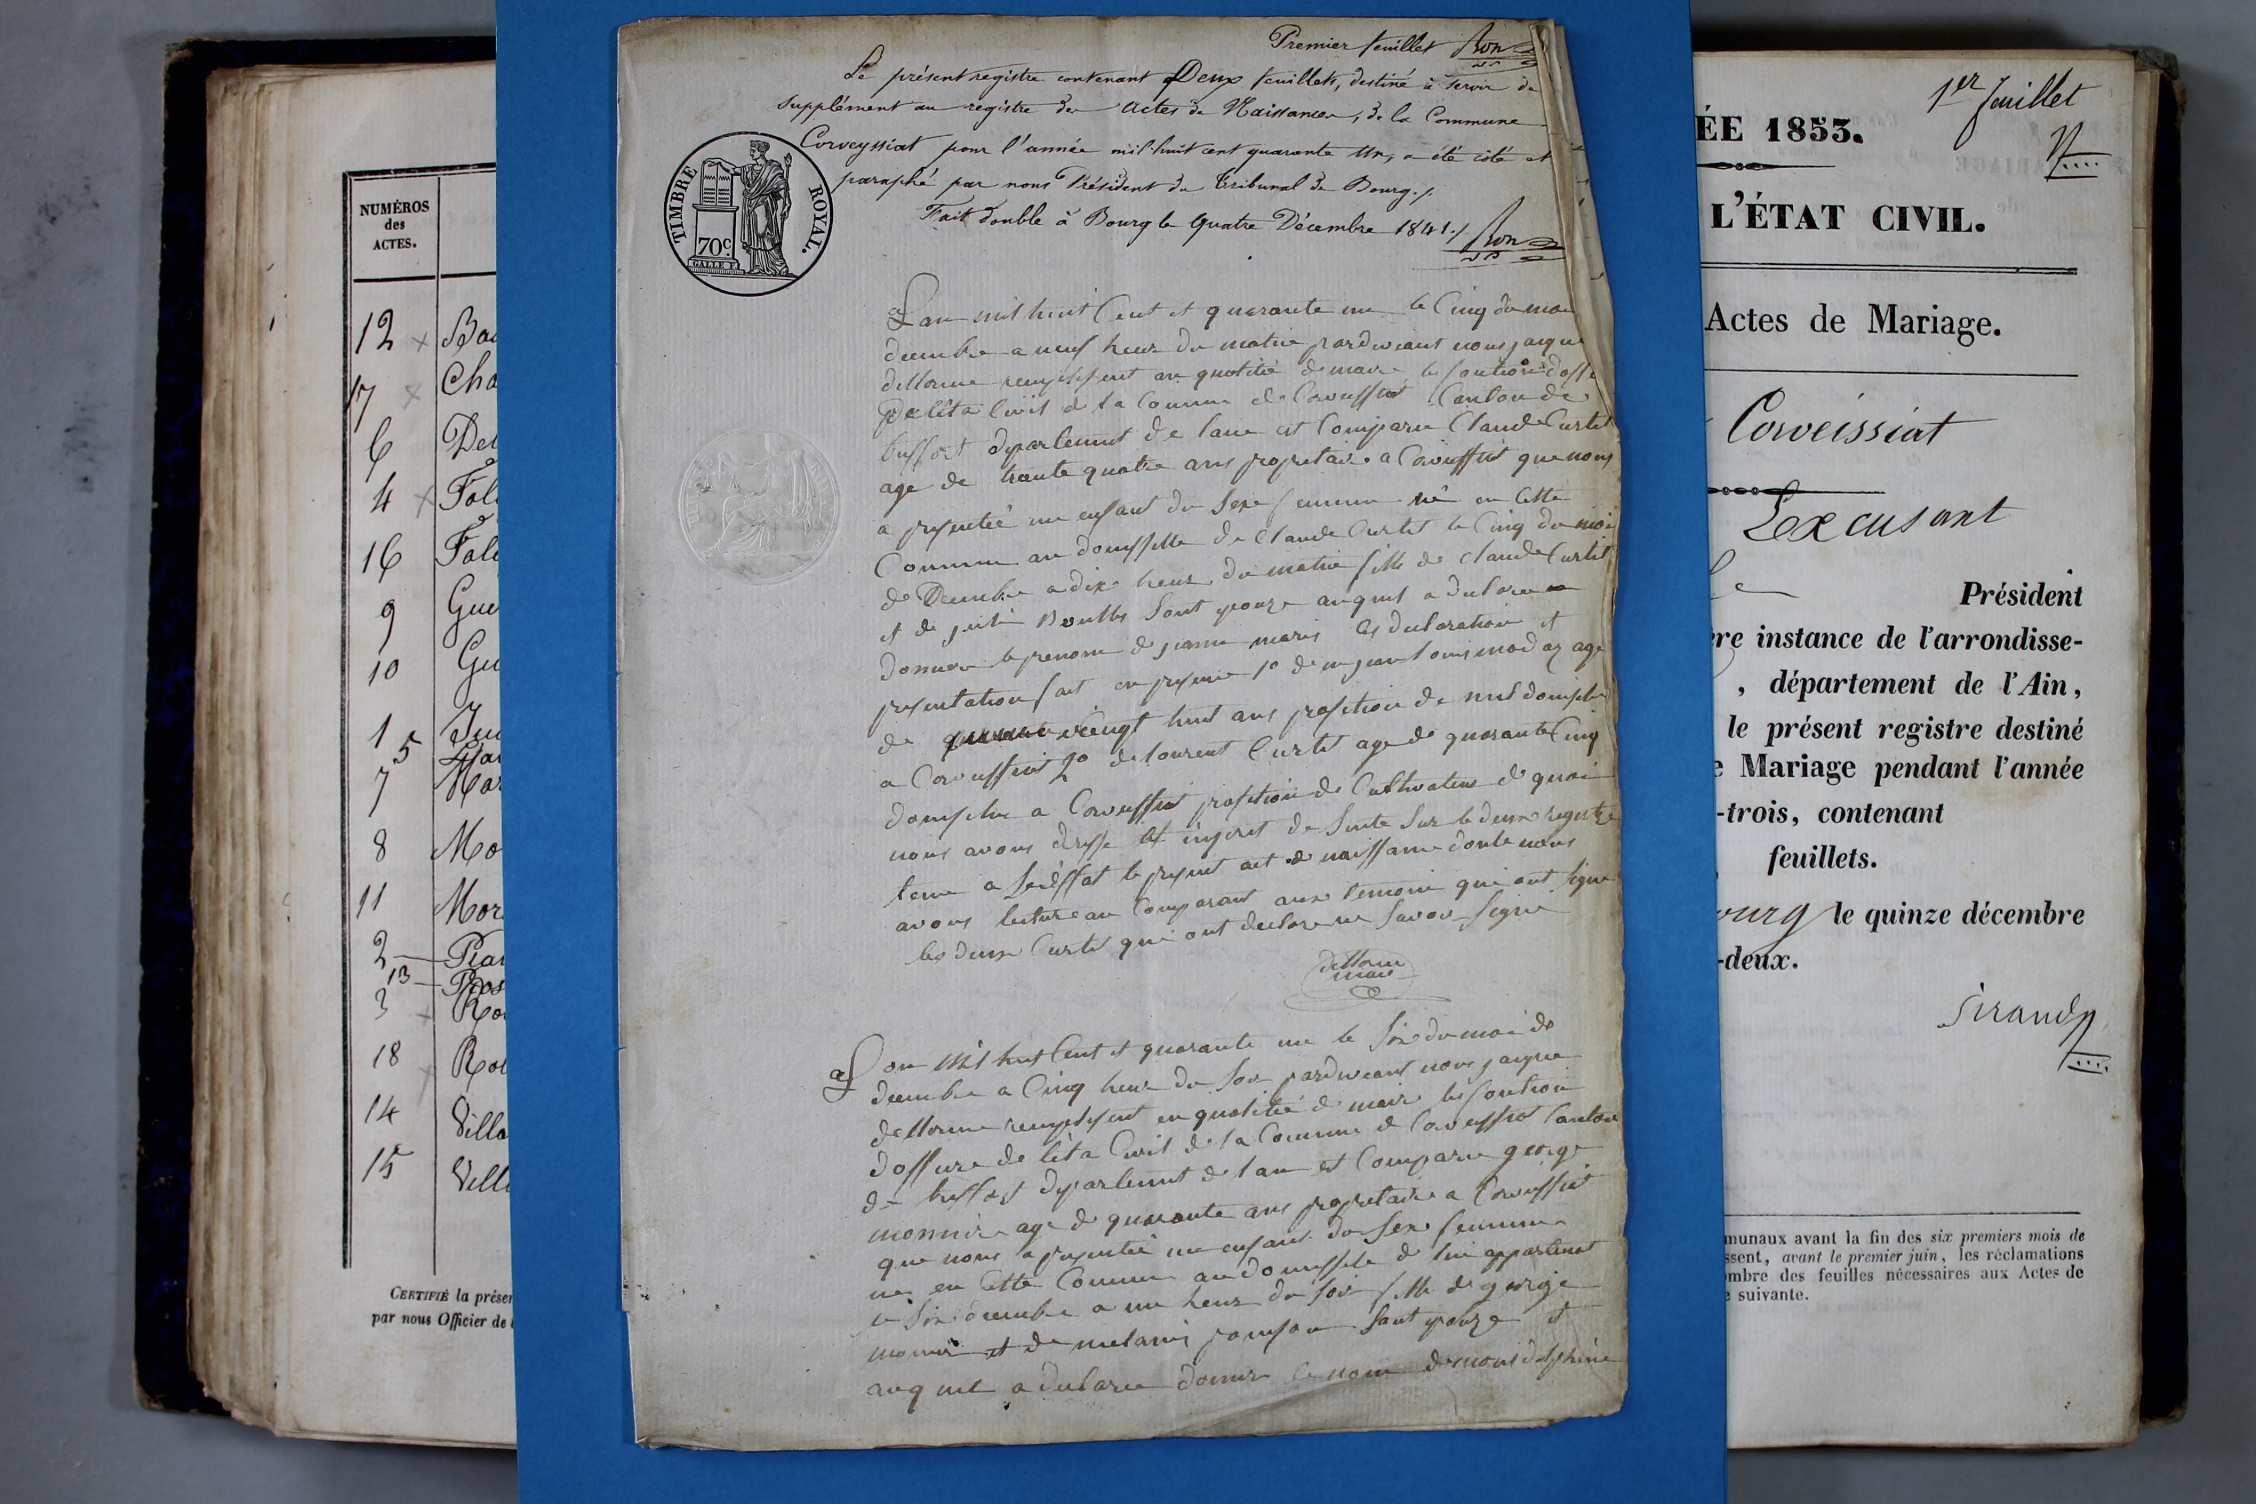 NUMÉROS
des
ACTES.
12 Bad
17 Cha
6 Del
4 Fol
16 Fol
9 Gue
10 Gu
1
5
7 Mor
8 Mo
11 Mor
2 Pia
13 Pros
3 Ro
18 Ro
14 Villa
15 Vill
CERTIFIÉ la prése
par nous Officier de
Premier feuillet
Le présent registre contenant Deux feuillets, destiné à servir de
supplément au registre des Actes de Naissances, de la Commune
Corveyssiat pour l'année mil huit cent quarante un, a été coté et
paraphé par nous Président du Tribunal de Bourg./.
Fait double à Bourg le quatre Décembre 1841./.
TIMBRE ROYAL.
70c
Lan mil huit Cent et quarante un le Cinq du moi
decembre a neuf heur du matin pardevant nous jaque
dellorme remplissent an qualitié de maire les fontion doff
de léta Civil de la Comune de Corveissiat Canton de
treffort departement de lain est Comparu Claude Curtet
age de trante quatre ans propretaire a Corveissiat que nous
a presentée un enfant du Sexe feminin né en Cette
Commune au domissille de Claude Curtet le Cinq du moi
de Decembre a dix heur du matin fille de Claude Curtet
et de Sont epouze auquel a declaree
donner le prenom de jeanne marie les declaration et
presentation fait en presence 1º de jean louis age
de vingt huit ans profetion de domisilié
a Corveissiat 2º de lourent Curtet age de quarante Cinq
domisilie a Corveissiat profetion de Cultivateur de quoi
nous avons dressé et inscrit de Suite Sur le deux registre
tenu a Seteffat le present act de naissance donte nous
avons lecture au Comparant aux temoin qui ont signe
les deux Curtet qui ont declare ne Savoir Signe
dellorme
maire
Lan mil huit Cent et quarante un le Six du moi de
decembre a Cinq heur du Soir pardevant nous jaque
dellorme remplissent en qualitié de maire les fontion
doffiere de léta Civil de la Comune de Corveissiat Canton
de treffort departement de lain est Comparu george
monnier age de quarante ans propretaire a Corveissiat
que nous a presentée un enfant du Sexe feminin
ne en Cette Commune au domissile de lui appartenant
le Six decembre a une heur du Soir fille de george
monnier et de melanie Sont epouze et
auquel a declaree donner le nom de delphine
1er feuillet
ÉE 1853.
L'ÉTAT CIVIL.
Actes de Mariage.
Corveissiat
Lexcusant
Président
re instance de l'arrondisse-
, département de l'Ain,
le présent registre destiné
e Mariage pendant l'année
-trois, contenant
feuillets.
ourg le quinze décembre
-deux.
Sirand
munaux avant la fin des six premiers mois de
ssent, avant le premier juin, les réclamations
ombre des feuilles nécessaires aux Actes de
e suivante.